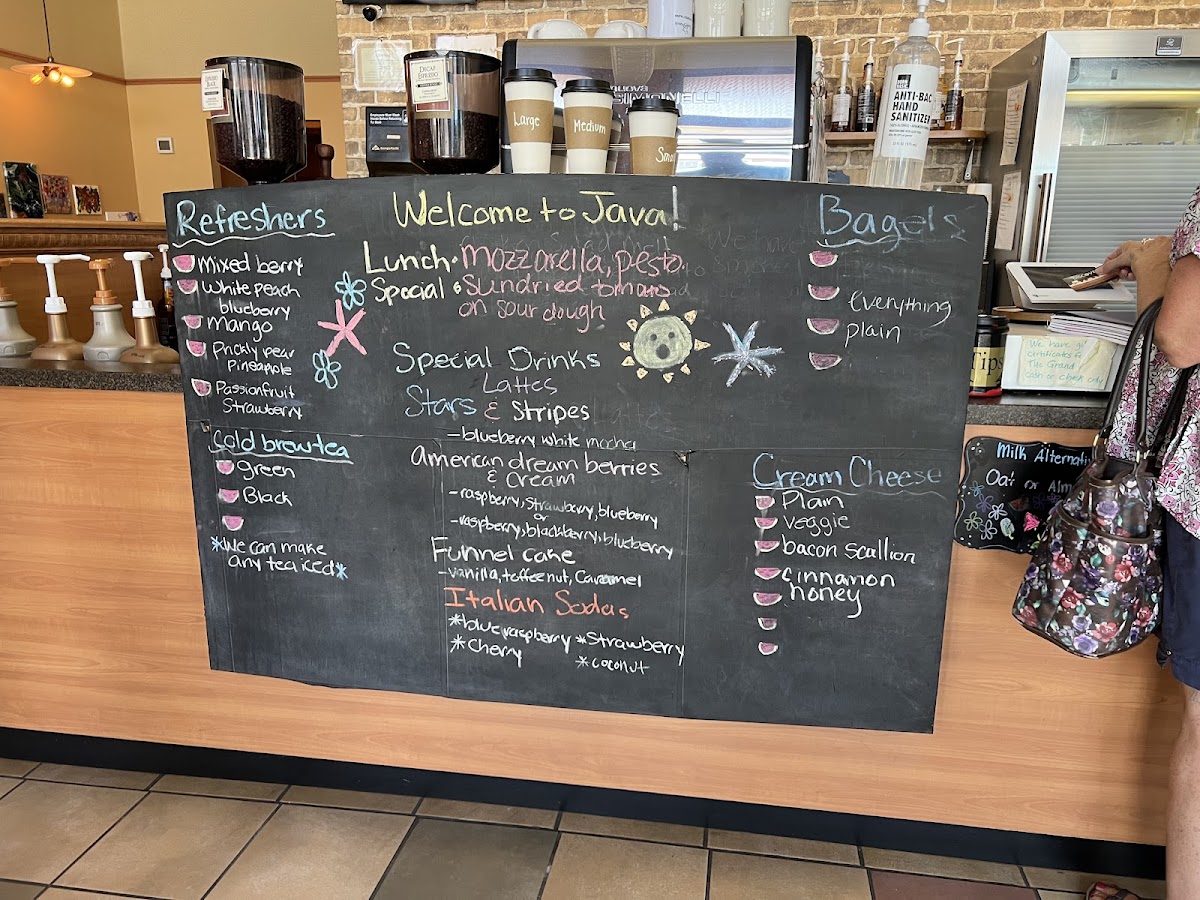 DECAF ESPRESSO
Large
Medium
Small
ANTI-BAC
HAND
SANITIZER
Refreshers
Mixed berry
White peach
blueberry
Mango
Prickly pear
Pineapple
Passionfruit
Strawberry
Cold brew tea
Green
Black
*We can make
any tea iced*
Welcome to Java!
Lunch • Mozzarella, pesto.
Special • Sundried tomato
on sour dough
Special Drinks
Lattes
Stars & Stripes
- blueberry white mocha
American dream berries
& cream
- raspberry, strawberry, blueberry
or
- raspberry, blackberry, blueberry
Funnel cake
- vanilla, toffee nut, Caramel
Italian Sodas
*blue raspberry *Strawberry
*Cherry *coconut
Bagels
Everything
plain
Cream Cheese
Plain
Veggie
bacon scallion
cinnamon
honey
Tips
We have gift
certificates for
The Grand
cash or check only
Milk Alternati
Oat or Alm